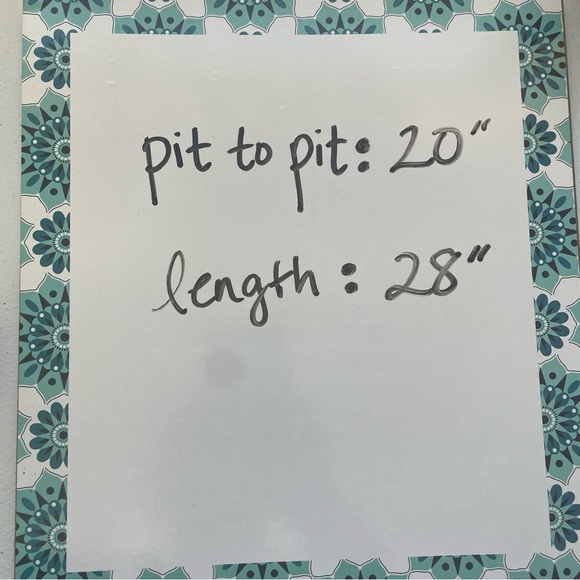 pit to pit: 20"
length: 28"